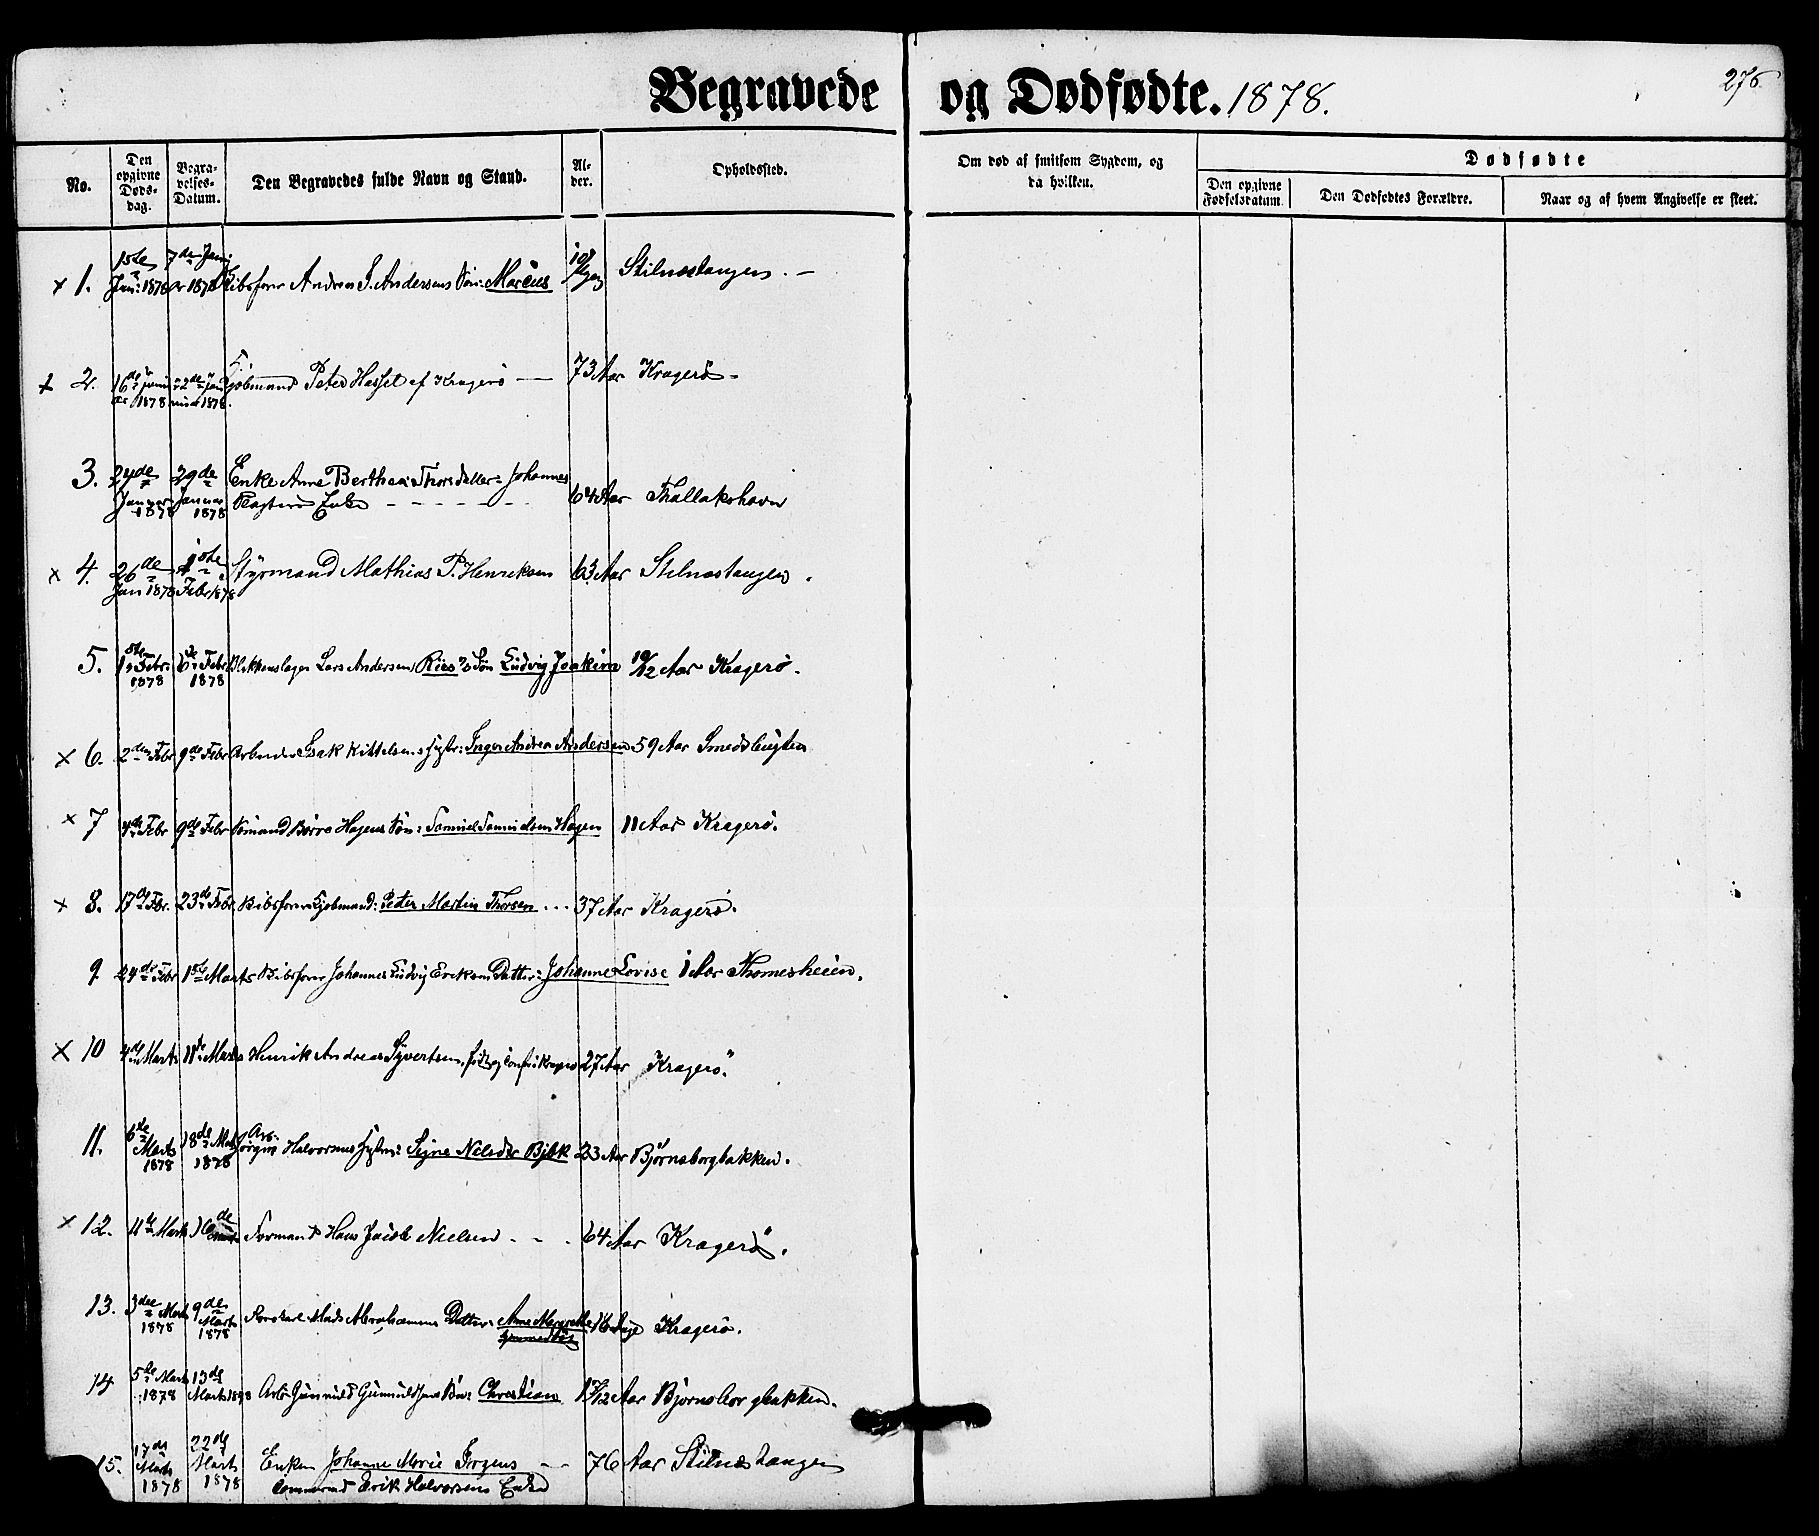 Begravede og Dødfødte. 1878.
275
No.
Den opgivne Døds-dag.
Begra-velses-Datum.
Den Begravedes fulde Navn og Stand.
Al-der.
Opholdssted.
Om død af smitsom Sygdom, og da hvilken.
Dødfødte
Den opgivne Fødselsdatum.
Den Dødfødtes Forældre.
Naar og af hvem Angivelse er skeet.
x 1. 1ste Jan: 1878 7de Januar 1878 Andreas J. Andersens Søn: Marius Stilnestangen. –
x 2. 16de Januar 1878 22de Januar 1878 Sjømand Peter Hassel af Kragerø — 73 Aar Kragerø –
3. 24de Januar 1878 29de Januar 1878 Enke Anne Berthea Thorsdatter: Johannes
Enke – – – – – – 64 Aar Thallakshavn
x 4. 26de Jan 1878 1ste Febr 1878 Styrmand Mathias P. Henriksen 63 Aar Stilnestangen.
5. 1ste Febr: 1878 6te Febr 1878 Blikkenslager Lars Andersen Riis's Søn Ludvig Joakim 10/12 Aar Kragerø.
x 6. 2den Febr 9de Febr Arbeider Isak Kittelsens Hustr: Inger Andrea Andersen 59 Aar Smedsbugten
x 7 4de Febr 9de Febr Sømand Børre Hagens Søn: Samuel Samuelsen Hagen 11 Aar Kragerø.
x 8. 17de Febr. 23de Febr. Sjømand: Peter Martin Thorsen ... 37 Aar Kragerø.
9 24de Febr 1ste Marts Johannes Ludvig Eriksens Datter: Johanne Lovise 1 Aar Thomesheien.
x 10 4de Marts 11te Marts Henrik Andreas Syvertsen, 27 Aar Kragerø.
11. 6te Marts 1878 18de Marts 1878 Arb. Jørgen Halvorsens Hustru: Signe Nilsdr Bjerk 23 Aar Bjørnsborgbakken.
x 12. 11te Marts 16de Formand Hans Jacob Nielsen – – . 64 Aar Kragerø.
13. 3die Marts 1878 9de Marts 1878 Mads Abrahamsens Datter: Anne Margrethe 16 Dage Kragerø.
14 5te Marts 1878 13de Marts 1878 Arb: Gunnuld Gunnuldsens Søn: Christian 1 /12 Aar Bjørnsborgbakken.
15. 17de Marts 1878 22de Marts 1878 Enken Johanne Marie Jørgens — 76 Aar Stilnestangen
Erik Halvorsens Enke